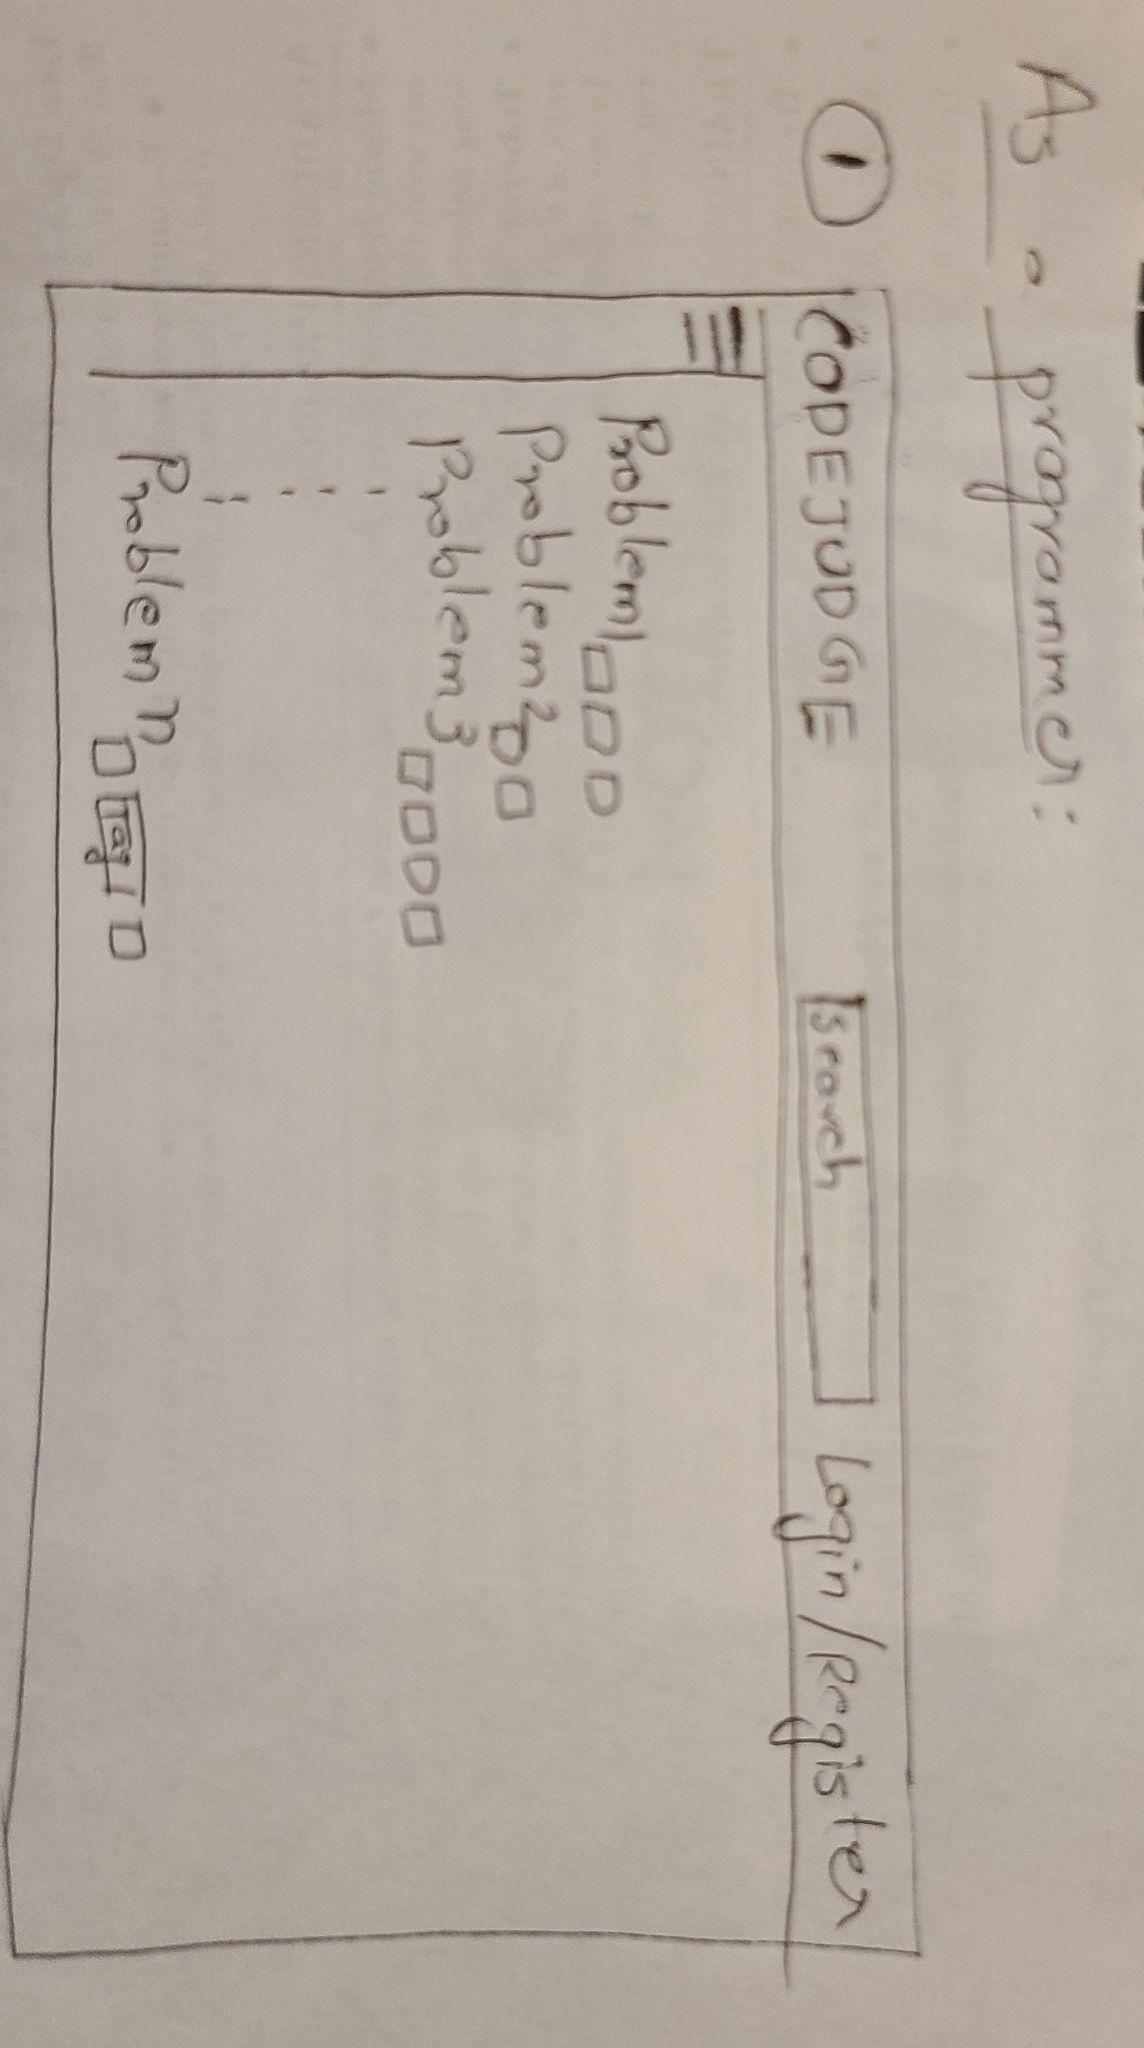 As a programmer:
1 CODEJUDGE Search Login/Register
Problem 1
Problem 2
Problem 3
Problem n Tag